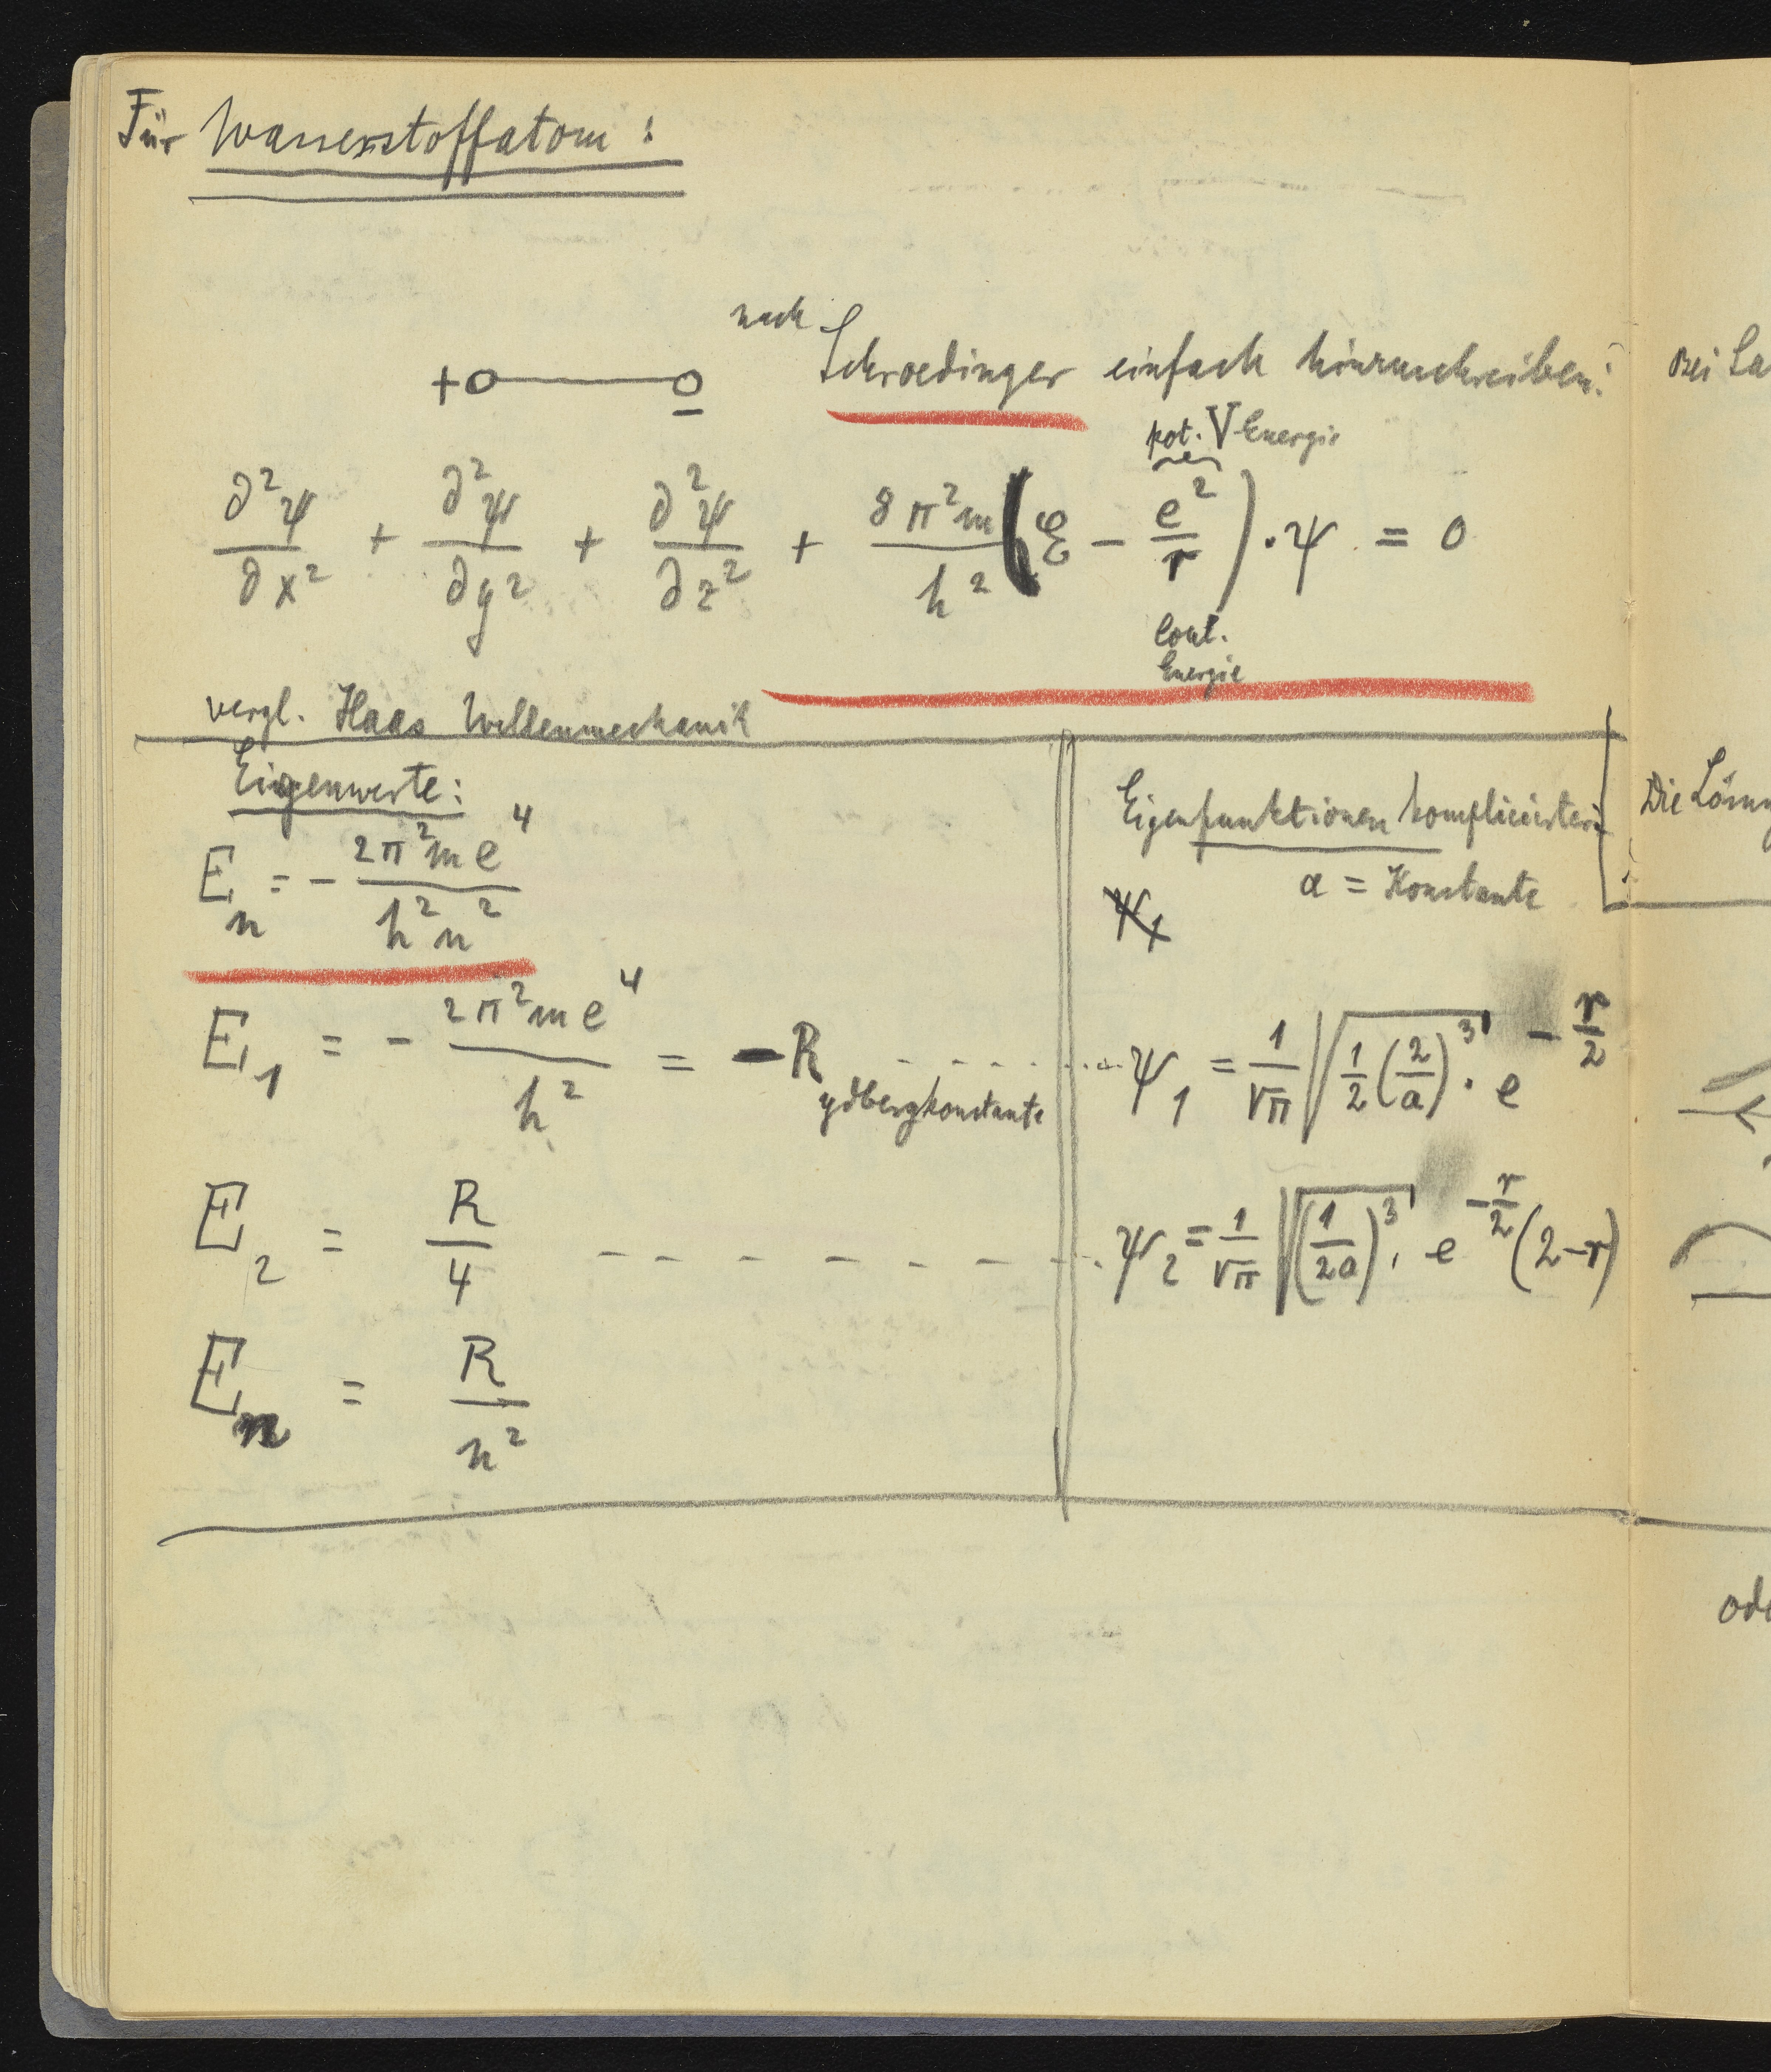 Für Wasserstoffatom:
nach Schroedinger einfach hinzuschreiben:
+o———o
−
pot. V Energie
∂²ψ/∂x² + ∂²ψ/∂y² + ∂²ψ/∂z² + 8π²m/h² (ℰ − e²/r) · ψ = 0
Energie
vergl. Haas Wellenmechanik
Eigenwerte:
E_n = − 2π²me⁴/h²n²
E₁ = − 2π²me⁴/h² = −Rydbergkonstante
E₂ = R/4
E_n = R/n²
Eigenfunktionen komplicierter:
a = Konstante
ψ₁
ψ₁ = 1/√π √(1/2 (2/a)³) · e^(−r/2)
ψ₂ = 1/√π √((1/2a)³) · e^(−r/2) (2−r)
Bei La
Die Lösun
ode